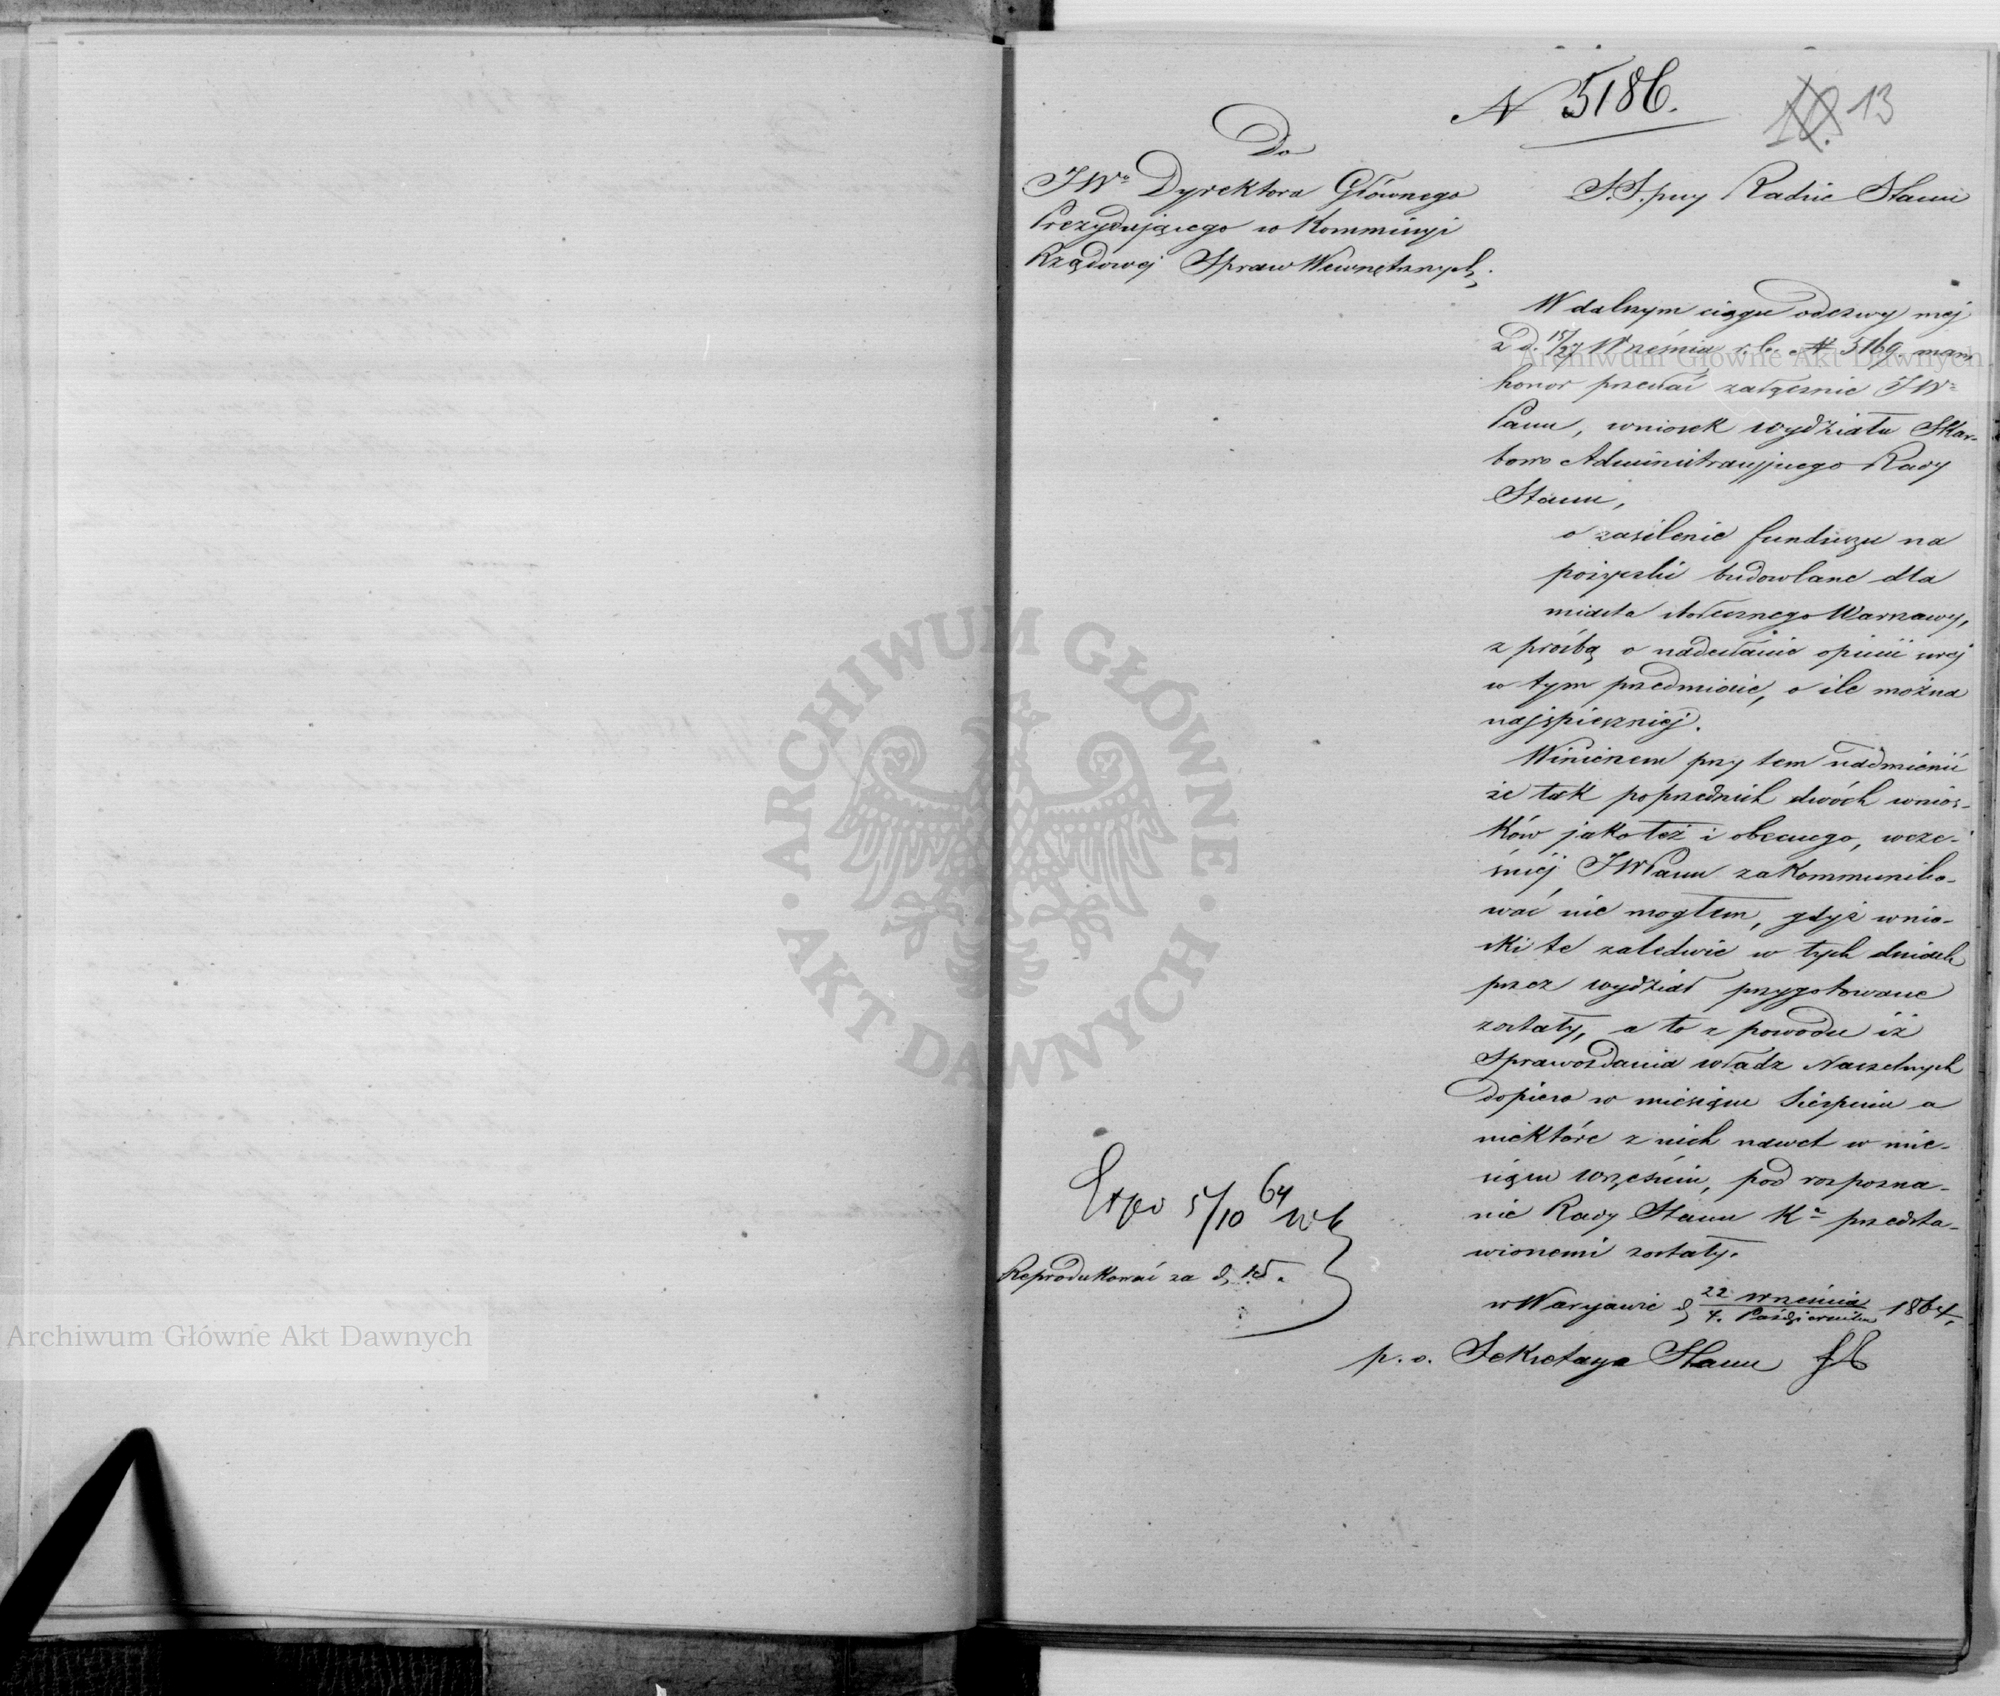 N 5186.
10. 13
Do
JWo Dyrektora Głównego
Prezydującego w Kommissyi
Rządowej Spraw Wewnętrznych,
S.S. przy Radzie Stanu
W dalszym ciągu odezwy mej
z d. 15/27 Września r. b. N 5169. mam
honor przesłać załącznie JW
Panu, wniosek wydziału Skar-
bowo Administracyjnego Rady
Stanu,
o zasilenie funduszu na
pożyczki budowlane dla
miasta stołecznego Warszawy,
z prośbą o nadesłanie opinii swej
w tym przedmiocie, o ile można
najspieszniej.
Winienem przy tem nadmienić
że tak poprzednich dwóch wnios-
ków jako też i obecnego, wcze-
śniej JWPanu zakommuniko-
wać nie mogłem, gdyż wnio-
ski te zaledwie w tych dniach
przez wydział przygotowane
zostały, a to z powodu iż
Sprawozdania władz Naczelnych
dopiero w miesiącu Sierpniu a
niektóre z nich nawet w mie-
siącu wrześniu, pod rozpozna-
nie Rady Stanu Ka przedsta-
wionemi zostały.
w Warszawie d 22 września / 4. Października 1864.
p. o. Sekretarza Stanu
Expo 5/10 64
Reprodukować za d, 15.
Archiwum Główne Akt Dawnych
ARCHIWUM GŁÓWNE · AKT DAWNYCH ·
Archiwum Główne Akt Dawnych